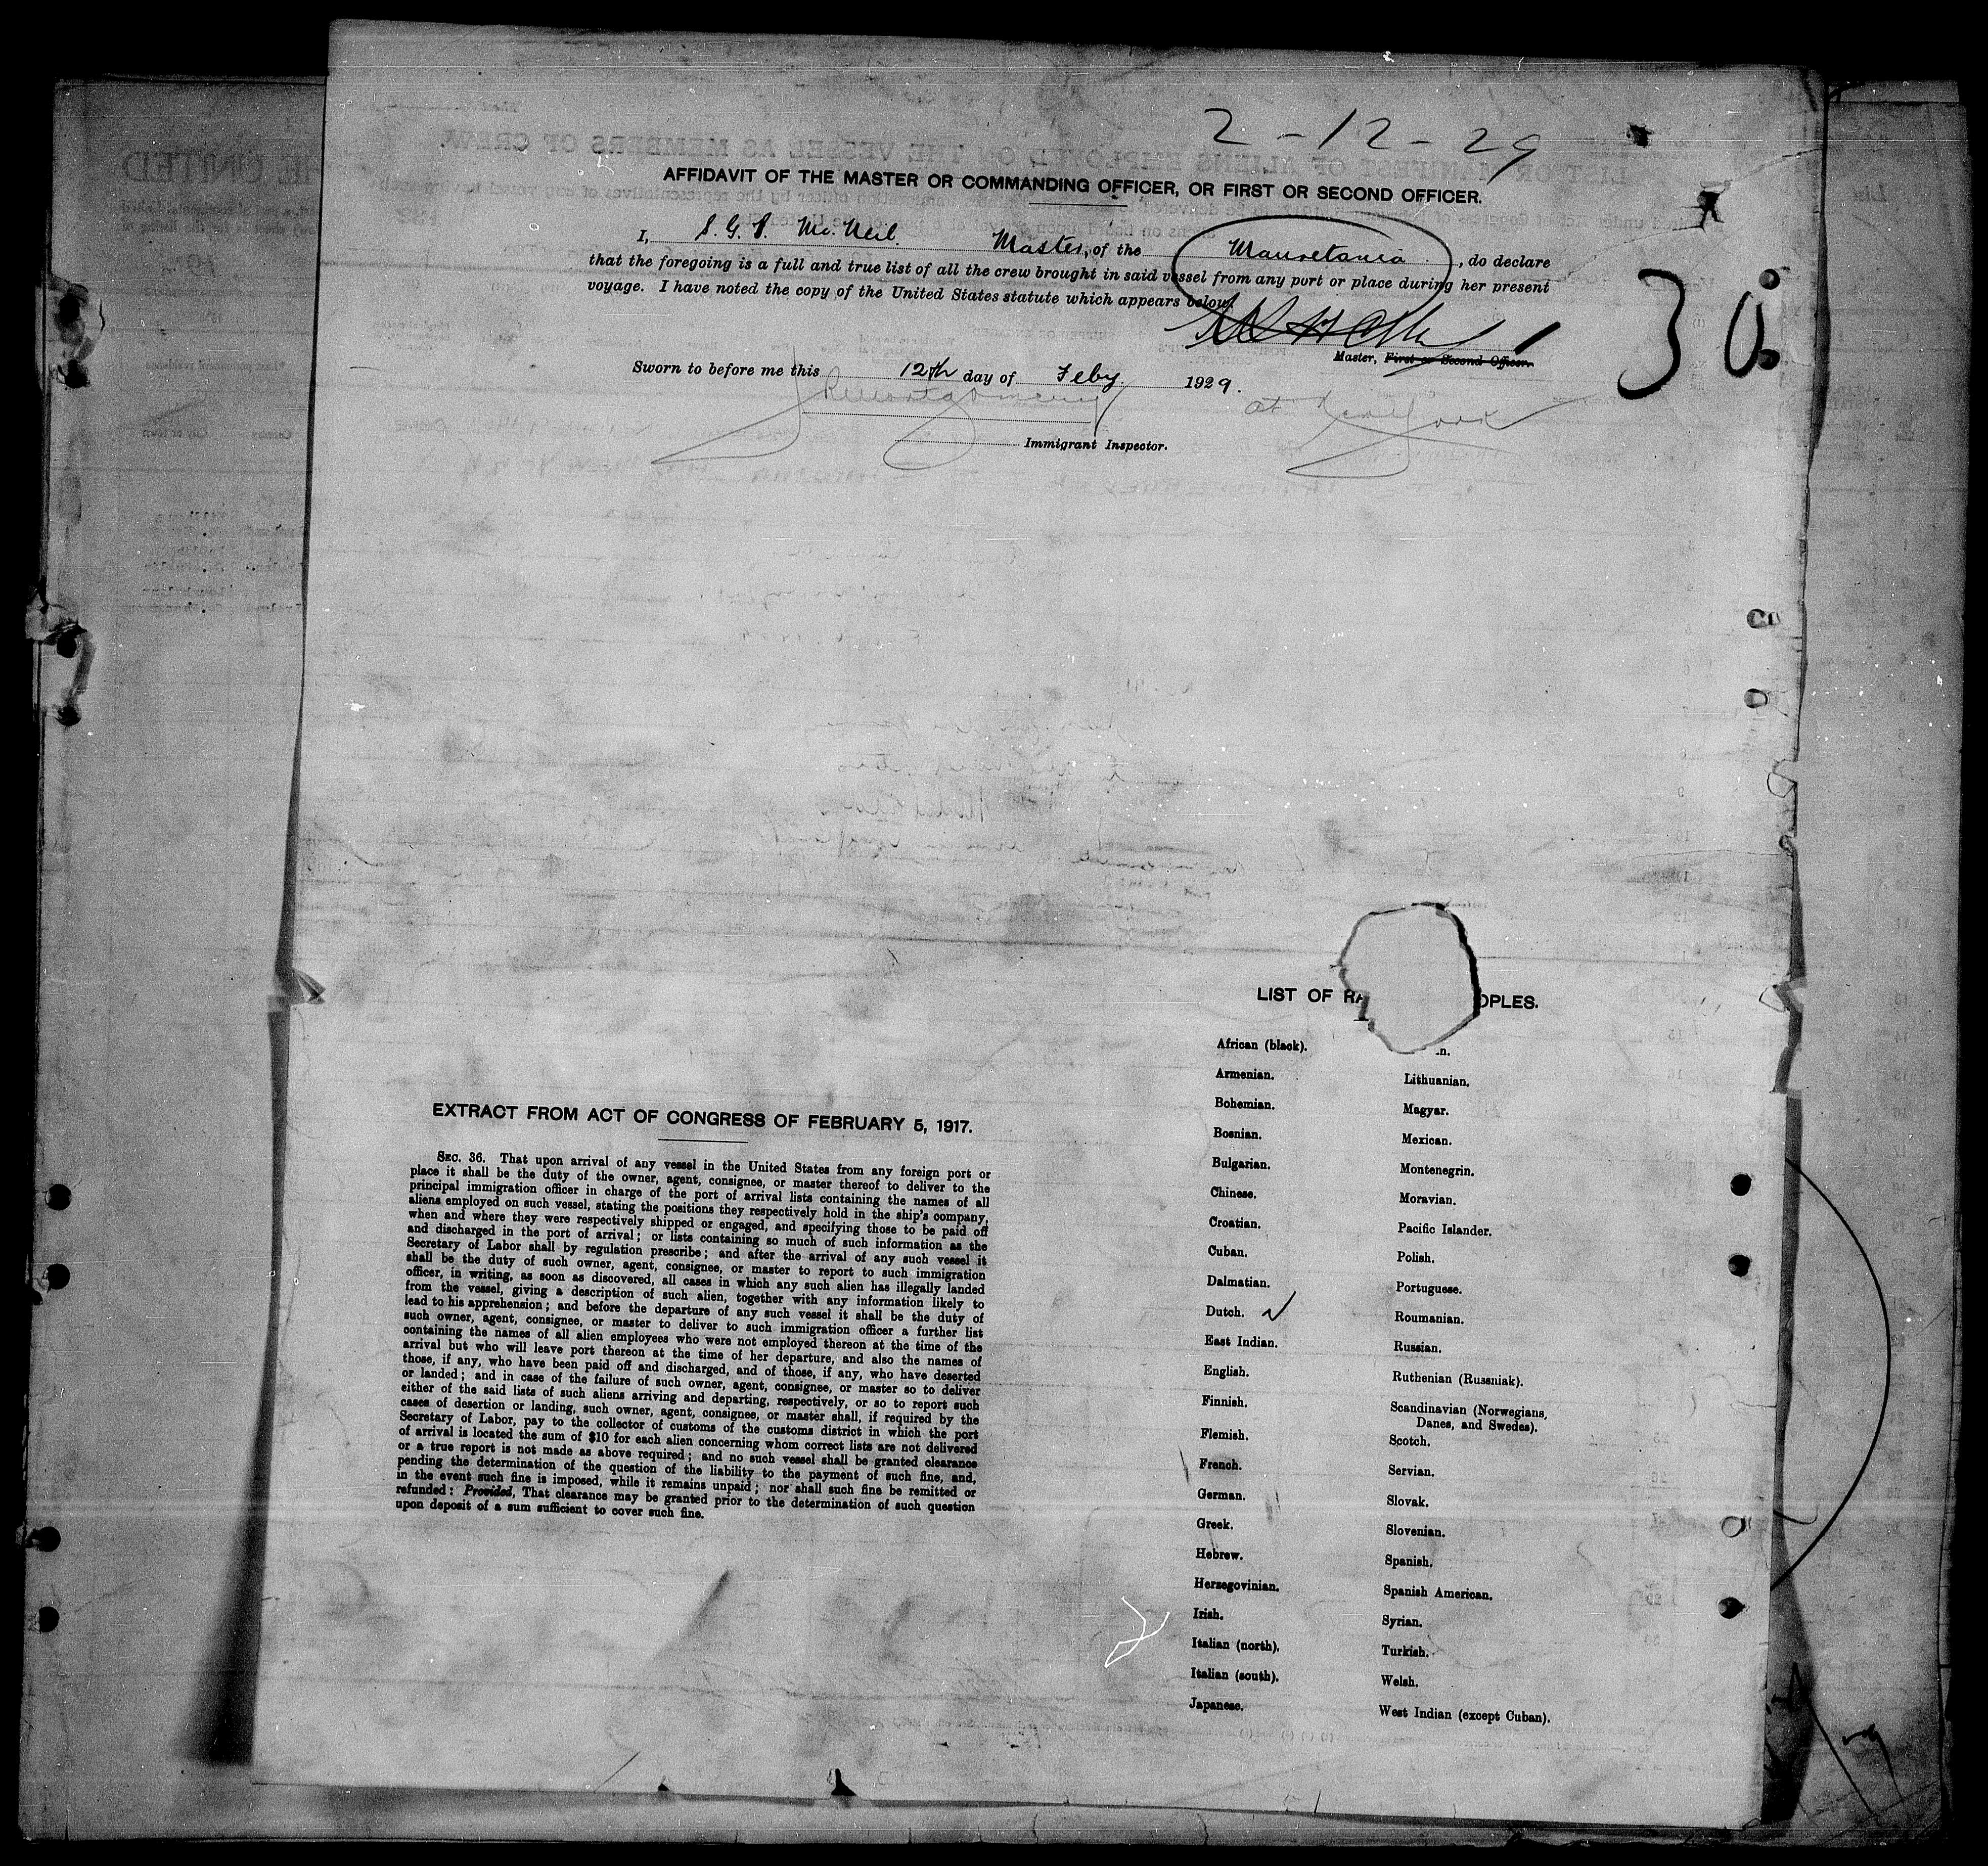 2-12-29
AFFIDAVIT OF THE MASTER OR COMMANDING OFFICER, OR FIRST OR SECOND OFFICER.
I, S. G. S. McNeil. Master, of the Mauretania, do declare
that the foregoing is a full and true list of all the crew brought in said vessel from any port or place during her present
voyage. I have noted the copy of the United States statute which appears below.
Master, First or Second Officer.
30
Sworn to before me this 12th day of Feby. 1929.
at New York
Immigrant Inspector.
LIST OF RA OPLES.
African (black).
Armenian.
Bohemian.
Bosnian.
Bulgarian.
Chinese.
Croatian.
Cuban.
Dalmatian.
Dutch.
East Indian.
English.
Finnish.
Flemish.
French.
German.
Greek.
Hebrew.
Herzegovinian.
Irish.
Italian (north).
Italian (south).
Japanese.
Lithuanian.
Magyar.
Mexican.
Montenegrin.
Moravian.
Pacific Islander.
Polish.
Portuguese.
Roumanian.
Russian.
Ruthenian (Russniak).
Scandinavian (Norwegians,
Danes, and Swedes).
Scotch.
Servian.
Slovak.
Slovenian.
Spanish.
Spanish American.
Syrian.
Turkish.
Welsh.
West Indian (except Cuban).
EXTRACT FROM ACT OF CONGRESS OF FEBRUARY 5, 1917.
SEC. 36. That upon arrival of any vessel in the United States from any foreign port or
place it shall be the duty of the owner, agent, consignee, or master thereof to deliver to the
principal immigration officer in charge of the port of arrival lists containing the names of all
aliens employed on such vessel, stating the positions they respectively hold in the ship's company,
when and where they were respectively shipped or engaged, and specifying those to be paid off
and discharged in the port of arrival; or lists containing so much of such information as the
Secretary of Labor shall by regulation prescribe; and after the arrival of any such vessel it
shall be the duty of such owner, agent, consignee, or master to report to such immigration
officer, in writing, as soon as discovered, all cases in which any such alien has illegally landed
from the vessel, giving a description of such alien, together with any information likely to
lead to his apprehension; and before the departure of any such vessel it shall be the duty of
such owner, agent, consignee, or master to deliver to such immigration officer a further list
containing the names of all alien employees who were not employed thereon at the time of the
arrival but who will leave port thereon at the time of her departure, and also the names of
those, if any, who have been paid off and discharged, and of those, if any, who have deserted
or landed; and in case of the failure of such owner, agent, consignee, or master so to deliver
either of the said lists of such aliens arriving and departing, respectively, or so to report such
cases of desertion or landing, such owner, agent, consignee, or master shall, if required by the
Secretary of Labor, pay to the collector of customs of the customs district in which the port
of arrival is located the sum of $10 for each alien concerning whom correct lists are not delivered
or a true report is not made as above required; and no such vessel shall be granted clearance
pending the determination of the question of the liability to the payment of such fine, and,
in the event such fine is imposed, while it remains unpaid; nor shall such fine be remitted or
refunded: Provided, That clearance may be granted prior to the determination of such question
upon deposit of a sum sufficient to cover such fine.